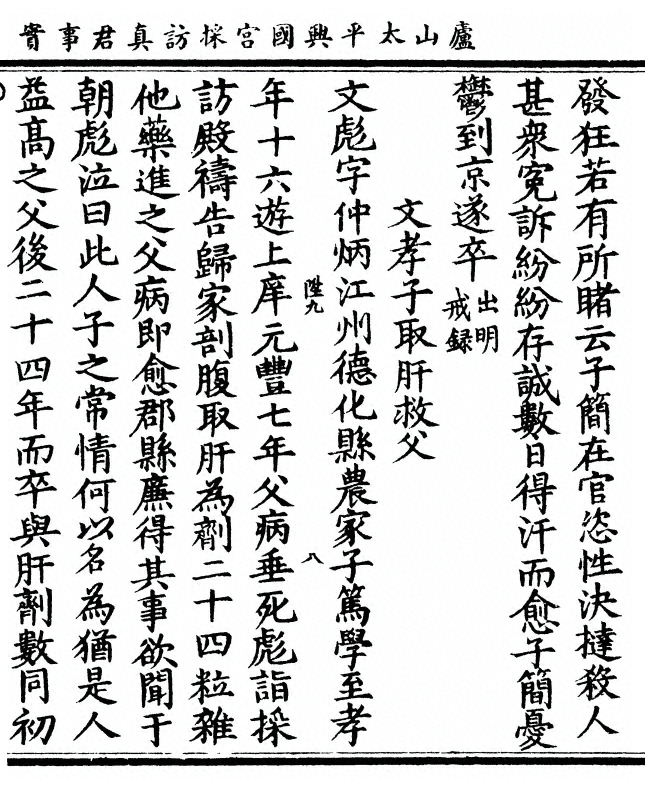 廬山太平興國宮採訪真君事實
發狂若有所睹云子簡在官恣性決撻殺人
甚衆冤訴紛紛存誠數日得汗而愈子簡憂
鬱到京遂卒出明戒録
文孝子取肝救父
文彪字仲炳江州德化縣農家子篤學至孝
陞九　八
年十六遊上庠元豐七年父病垂死彪詣採
訪殿禱告歸家剖腹取肝為劑二十四粒雜
他藥進之父病即愈郡縣廉得其事欲聞于
朝彪泣曰此人子之常情何以名為猶是人
益高之父後二十四年而卒與肝劑數同初